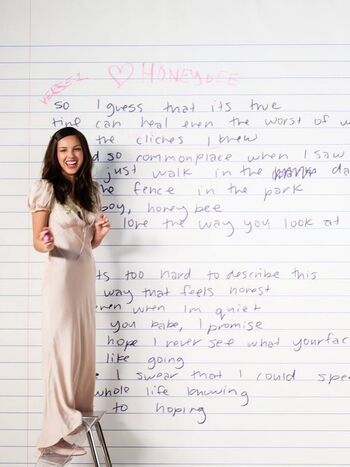 VERSE 1 ♡ HONEYBEE
so I guess that its true
time can heal even the worst of w
the cliches I knew
d so commonplace when I saw
just walk in the da
he fence in the park
boy, honey bee
love the way you look at
ts too hard to describe this
way that feels honest
ven when Im quiet
you babe, I promise
hope I never see what your fac
like going
I swear that I could spe
whole life knowing
to hoping